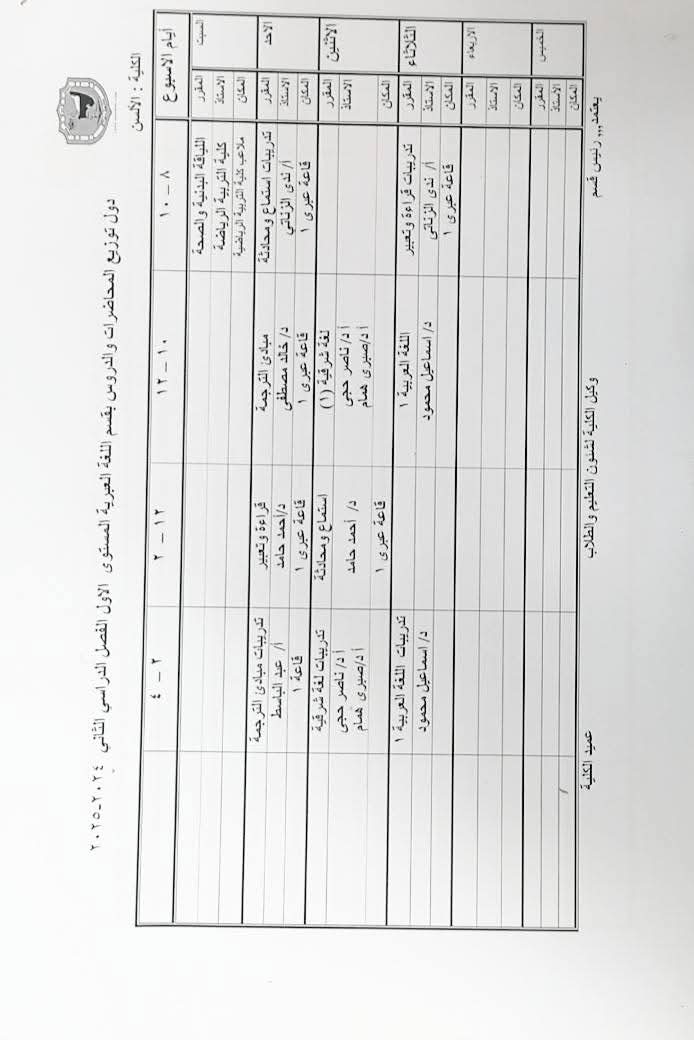 الكلية : الألسن
دول توزيع المحاضرات والدروس بقسم اللغة العبرية المستوى الاول الفصل الدراسي الثاني ٢٠٢٤-٢٠٢٥
أيام الاسبوع ٨ – ١٠ ١٠ – ١٢ ١٢ – ٢ ٢ – ٤
السبت
المقرر اللياقة البدنية والصحة
الاستاذ كلية التربية الرياضة
المكان ملاعب كلية التربية الرياضية
الاحد
المقرر تدريبات استماع ومحادثة مبادئ الترجمة قراءة وتعبير تدريبات مبادئ الترجمة
الاستاذ أ/ ندى الزناتي د/ خالد مصطفى د/أحمد حامد أ/ عبد الباسط
المكان قاعة عبرى ١ قاعة عبرى ١ قاعة عبرى ١ قاعة ١
الاثنين
المقرر لغة شرقية (١) استماع ومحادثة تدريبات لغة شرقية
الاستاذ أ د/ ناصر حجى أ د/صبرى همام د/ أحمد حامد أ د/ ناصر حجى أ د/صبرى همام
المكان قاعة عبرى ١
الثلاثاء
المقرر تدريبات قراءة وتعبير اللغة العربية ١ تدريبات اللغة العربية ١
الاستاذ أ/ ندى الزناتي د/ اسماعيل محمود د/ اسماعيل محمود
المكان قاعة عبرى ١
الاربعاء
المقرر
الاستاذ
المكان
الخميس
المقرر
الاستاذ
المكان
يعتمد,,, رئيس قسم وكيل الكلية لشئون التعليم والطلاب عميد الكلية